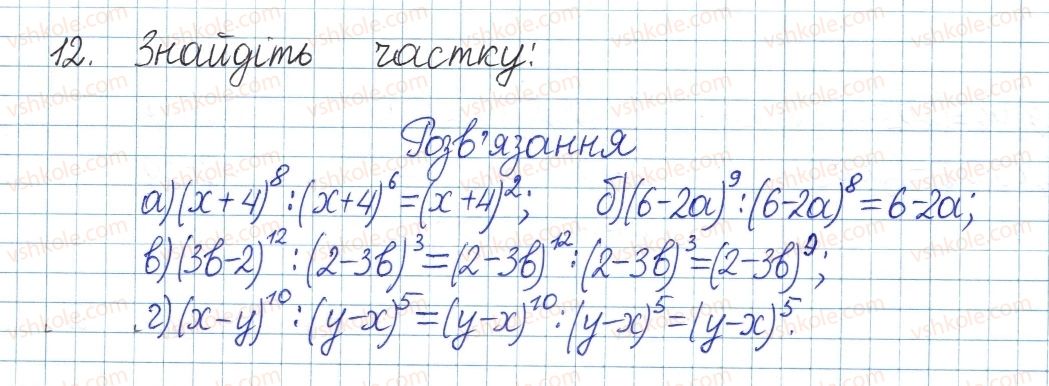 12. Знайдіть частку:
Розв'язання
а) (x+4)⁸ : (x+4)⁶ = (x+4)²; б) (6-2a)⁹ : (6-2a)⁸ = 6-2a;
в) (3в-2)¹² : (2-3в)³ = (2-3в)¹² : (2-3в)³ = (2-3в)⁹;
г) (x-y)¹⁰ : (y-x)⁵ = (y-x)¹⁰ : (y-x)⁵ = (y-x)⁵.